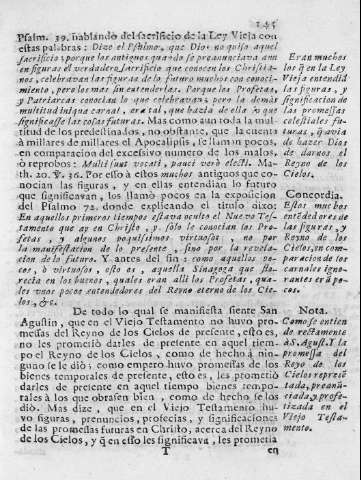 145
Psalm. 39. hablando del sacrificio de la Ley Vieja con
estas palabras: Dize el Psalmo, que Dios no quiso aquel
sacrificio; porque los antiguos quando se preanunciava aun
en figuras el verdadero sacrificio que conocen los Christia-
nos, celebravan las figuras de lo futuro muchos con conoci-
miento, pero los mas sin entenderlas. Porque los Profetas,
y Patriarcas conocian lo que celebravan; pero la demàs
multitud iniqua carnal, era tal, que hazia de ella lo que
significasse las cosas futuras. Mas como aun toda la mul-
titud de los predestinados, no obstante, que la cuenta
à millares de millares el Apocalipsi, se llamó pocos,
en comparacion del excessivo numero de los malos,
ò reprobos: Multi sunt vocati, pauci verò electi. Ma-
th. 20. ℣. 16. Por esso à estos muchos antiguos que co-
nocian las figuras, y en ellas entendian lo futuro
que significavan, los llamò pocos en la exposicion
del Psalmo 72. donde explicando el titulo dize:
En aquellos primeros tiempos estava oculto el Nuevo Tes-
tamento que ay en Christo, y sòlo le conocian los Pro-
fetas, y algunos poquissimos virtuosos, no por
la manifestacion de lo presente, sino por la revela-
cion de lo futuro. Y antes del fin: como aquellos po-
cos, ò virtuosos, esto es, aquella Sinagoga que flo-
recia en los buenos, quales eran alli los Profetas, qua-
les unos pocos entendedores del Reyno eterno de los Cie-
los, &c.
De todo lo qual se manifiesta siente San
Agustin, que en el Viejo Testamento no huvo pro-
messas del Reyno de los Cielos de presente, esto es,
no les prometió darles de presente en aquel tiem-
po el Reyno de los Cielos, como de hecho à nin-
guno se le diò; como empero huvo promessas de los
bienes temporales de presente, esto es, les prometiò
darles de presente en aquel tiempo bienes tempo-
rales à los que obrassen bien, como de hecho se los
diò. Mas dize, que en el Viejo Testamento hu-
vo figuras, prenuncios, profecias, y significaciones
de las promessas futuras en Christo, acerca del Reyno
de los Cielos, y q̃ en esso les significava, les prometia
T
en
Eran muchos
los q̃ en la Ley
Vieja entendiã
las figuras, y
significacion de
las promessas
celestiales fu-
turas, q̃ avia
de hazer Dios
de darnos el
Reyno de los
Cielos.
Concordia.
Estos muchos
entẽdedores de
las figuras, y
Reyno de los
Cielos, en com-
paracion de los
carnales igno-
rantes erã po-
cos.
Nota.
Como se entien
de rectamente
à S. Agust. I la
promessa del
Reyno de los
Cielos represẽ
tada, preanũ-
ciada, y profe-
tizada en el
Viejo Testa-
mento.